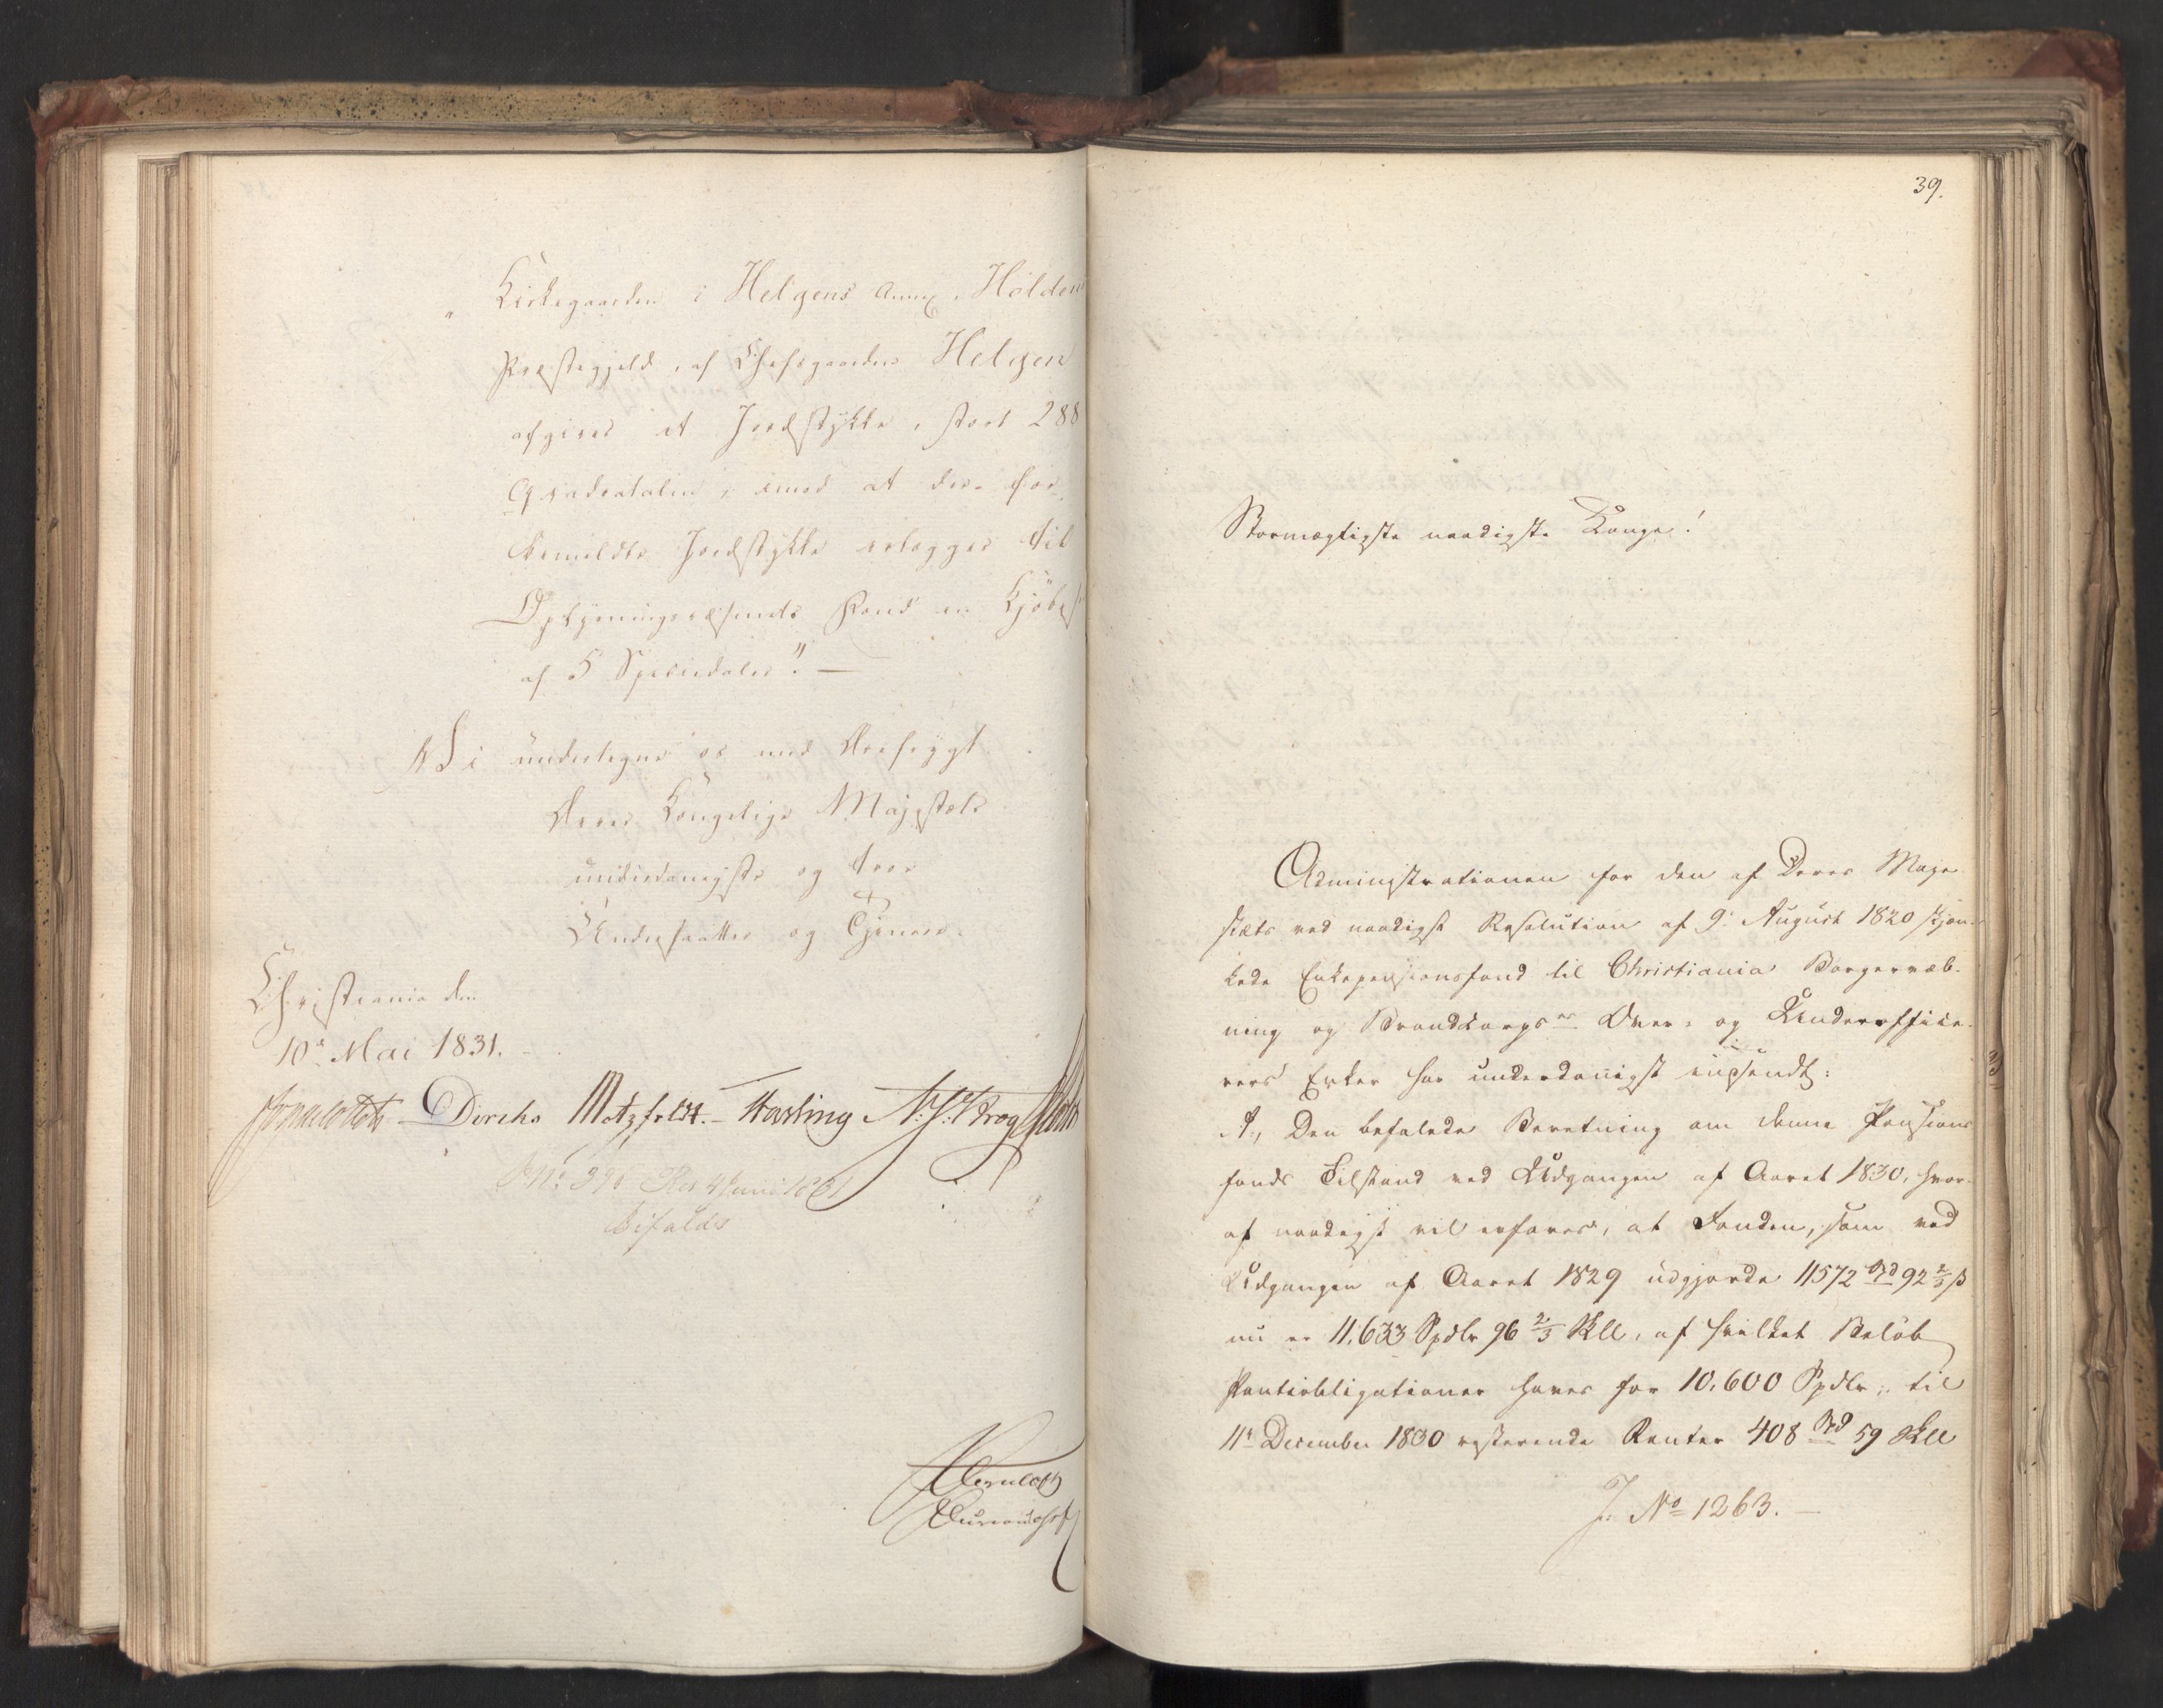 „Kirkegaarden i Helgens Annex, Holden
Præstegjeld, af Chefsgaarden Helgen
afgives et Jordstykke, stort 288
Qvadratalen, imod at der for
bemeldte Jordstykke erlægges til
Oplysningsvæsenets Fond en Kjøbes
af 5 Speciedaler." —
Vi undertegne os med Ærefrygt
Deres Kongelige Majestæts
underdanigste og troe
Undersaatter og Tjenere.
Christiania den
10de Mai 1831.
Diriks Motzfeldt. Harling N. J. Krog
No 390 Res 4 Juni 1831
bifaldes
39.
Stormægtigste naadigste Konge!
Administrationen for den af Deres Maje
stæts ved naadigst Resolution af 9de August 1820 skjæn-
kede Enkepensionsfond til Christiania Borgervæb-
ning og Brandkorpses Over- og Underoffice-
rers Enker har underdanigst indsendt:
A., Den befalede Beretning om denne Pensions
fonds Tilstand ved Udgangen af Aaret 1830, hvor-
af naadigst vil erfares, at Fonden, som ved
Udgangen af Aaret 1829 udgjorde 11572 Spd 92 2/3 ß
nu er 11.633 Spdlr 96 2/3 Skll, af hvilket Beløb
Pantiobligationer haves for 10.600 Spdlr; til
11te December 1830 resterende Renter 408 Spd 59 Skll
J. No 1263. —